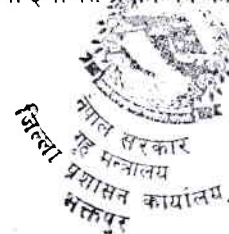 नेपाल सरकार
गृह मन्त्रालय
जिल्ला प्रशासन कार्यालय,
भक्तपुर